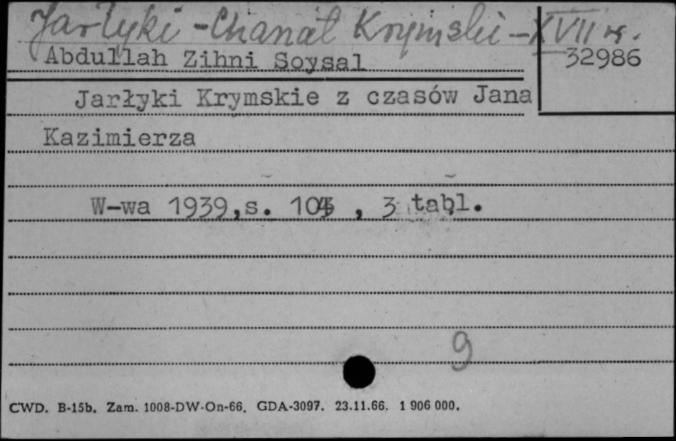 Jarłyki - Chanat Krymski - XVII w.
Abdullah Zihni Soysal
32986
Jarłyki Krymskie z czasów Jana
Kazimierza
W-wa 1939,s. 104 , 3 tabl.
9
CWD. B-15b. Zam. 1008-DW-On-66. GDA-3097. 23.11.66. 1 906 000.